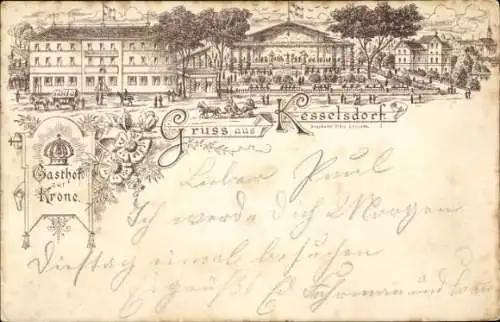 Gruss aus Kesselsdorf.
Gasthof
zur
Krone.
Lieber Paul
Ich werde Dich Morgen
Dienstag einmal besuchen
Es grüßt
und